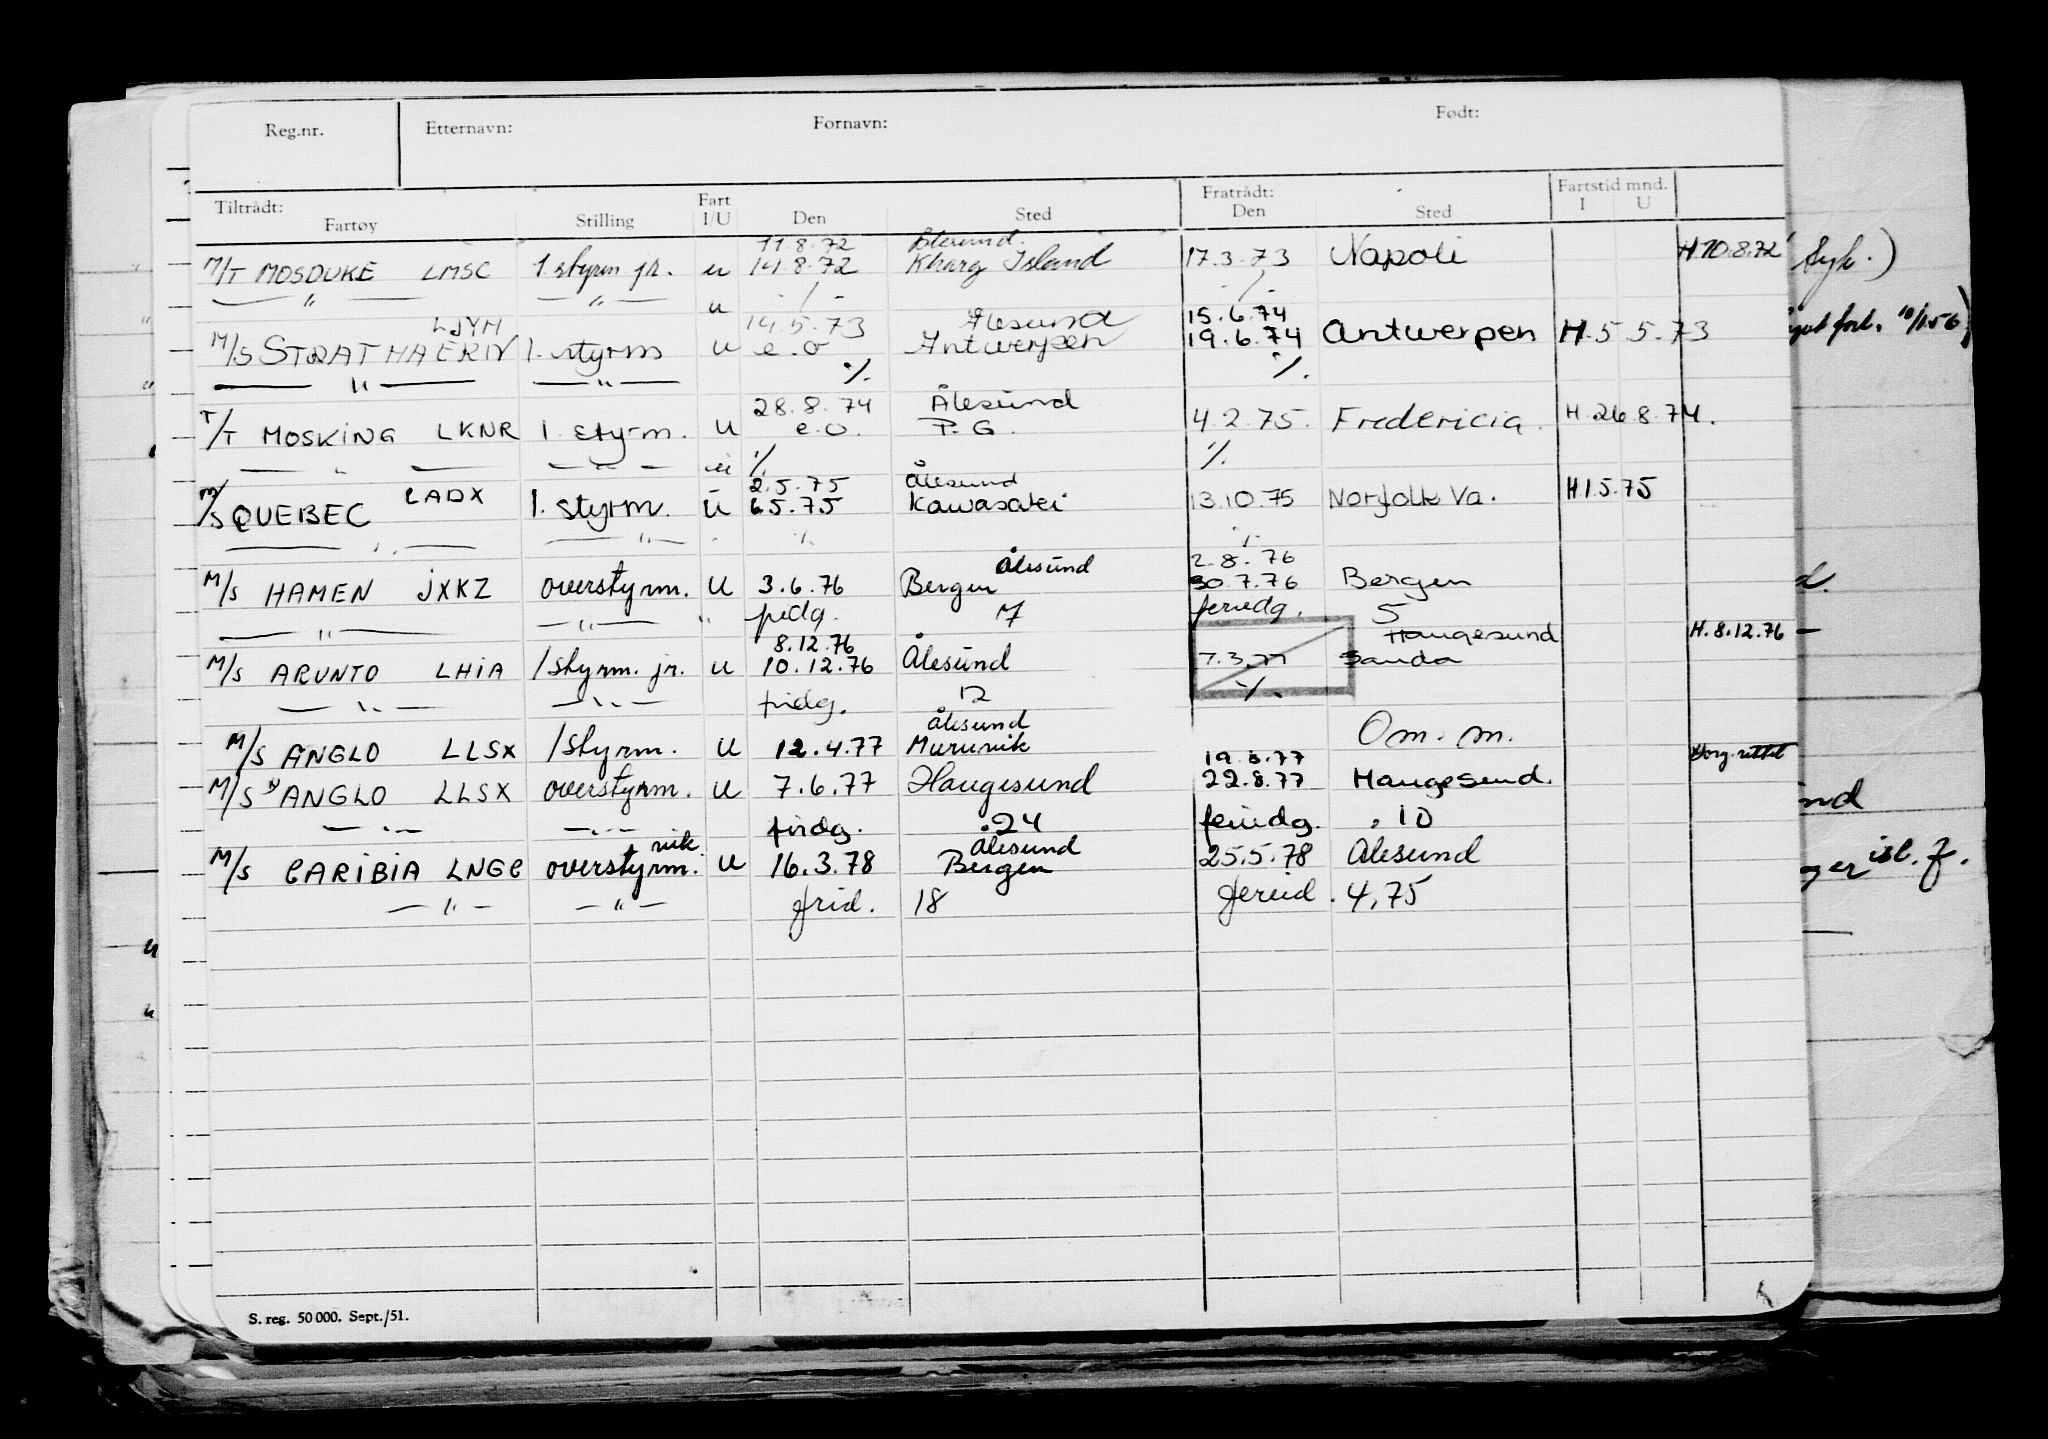 Reg.nr. Etternavn: Fornavn: Født:
Tiltrådt: Fart Fratrådt: Fartstid mnd.
Fartøy Stilling I/U Den Sted Den Sted I U
11.8.72 Ålesund.
M/T MOSDUKE LMSC 1 styrm jr. u 14.8.72 Kharg Island 17.3.73 Napoli H 10.8.72 Syk.)
— " — — " — u ./. ./.
LJYM 14.5.73 Ålesund 15.6.74
M/S STRATHAERIN 1. styrm u e.o Antwerpen 19.6.74 Antwerpen H.5 5.73
— " — — " — ./. ./.
28.8.74 Ålesund
T/T MOSKING LKNR 1. styrm. u e.o. P.G. 4.2.75. Fredericia. H.26.8.74.
— " — — " — u ./. ./.
2.5.75 Ålesund
M/S QUEBEC LADX 1. styrm. U 6.5.75 Kawasaki 13.10.75 Norfolk Va. H.1.5.75
— " — — " — ./. ./.
Ålesund 2.8.76
M/S HAMEN JXKZ overstyrm. U 3.6.76 Bergen 30.7.76 Bergen
— " — — " — " 7 feriedg. 5
8.12.76 Haugesund H. 8.12.76 —
M/S ARUNTO LHIA 1 styrm. jr. U 10.12.76 Ålesund 7.3.77 Sauda
— " — — " — fridg. 12 ./.
Ålesund Om. m.
M/S ANGLO LLSX 1 styrm. U 12.4.77 Muruvik 19.8.77
M/S ANGLO LLSX overstyrm. U 7.6.77 Haugesund 22.8.77 Haugesund.
— " — — " — fridg. 24 feriedg. 10
vik. Ålesund
M/S CARIBIA LNGC overstyrm. U 16.3.78 Bergen 25.5.78 Ålesund
— " — — " — frid. 18 feried. 4,75
S. reg. 50 000. Sept./51.